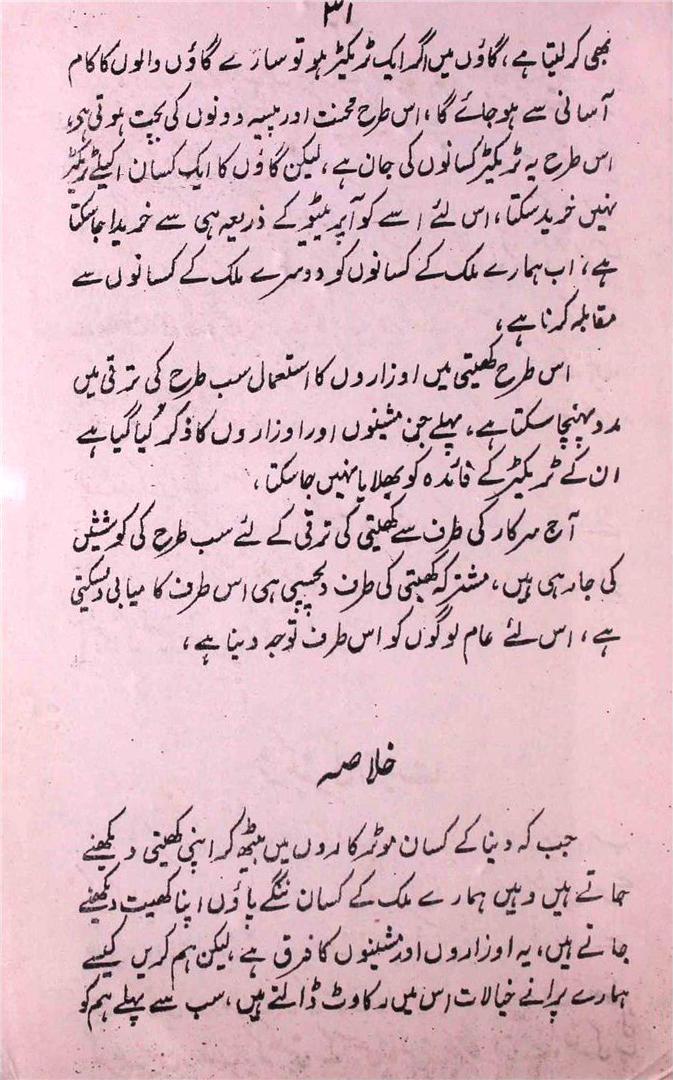 ۳۱
بھی کر لیتا ہے، گاؤں میں اگر ایک ٹریکٹر ہو تو سارے گاؤں والوں کا کام
آسانی سے ہو جائے گا، اس طرح محنت اور پیسہ دونوں کی بچت ہوتی ہی،
اس طرح یہ ٹریکٹر کسانوں کی جان ہے، لیکن گاؤں کا ایک کسان اکیلے ٹریکٹر
نہیں خرید سکتا، اس لئے اسے کوآپریٹیو کے ذریعہ ہی سے خریدا جا سکتا
ہے، اب ہمارے ملک کے کسانوں کو دوسرے ملک کے کسانوں سے
مقابلہ کرنا ہے،
اس طرح کھیتی میں اوزاروں کا استعمال سب طرح کی ترقی میں
مدد پہنچا سکتا ہے، پہلے جن مشینوں اور اوزاروں کا ذکر کیا گیا ہے
ان کے ٹریکٹر کے فائدہ کو بھلایا نہیں جا سکتا،
آج سرکار کی طرف سے کھیتی کی ترقی کے لئے سب طرح کی کوششیں
کی جا رہی ہیں، مشترکہ کھیتی کی طرف دلچسپی ہی اس طرف کامیابی دلا سکتی
ہے، اس لئے عام لوگوں کو اس طرف توجہ دینا ہے،
خلاصہ
جب کہ دنیا کے کسان موٹر کاروں میں بیٹھ کر اپنی کھیتی دیکھنے
جاتے ہیں وہیں ہمارے ملک کے کسان ننگے پاؤں اپنا کھیت دیکھنے
جاتے ہیں، یہ اوزاروں اور مشینوں کا فرق ہے، لیکن ہم کریں کیسے
ہمارے پرانے خیالات اس میں رکاوٹ ڈالتے ہیں، سب سے پہلے ہم کو